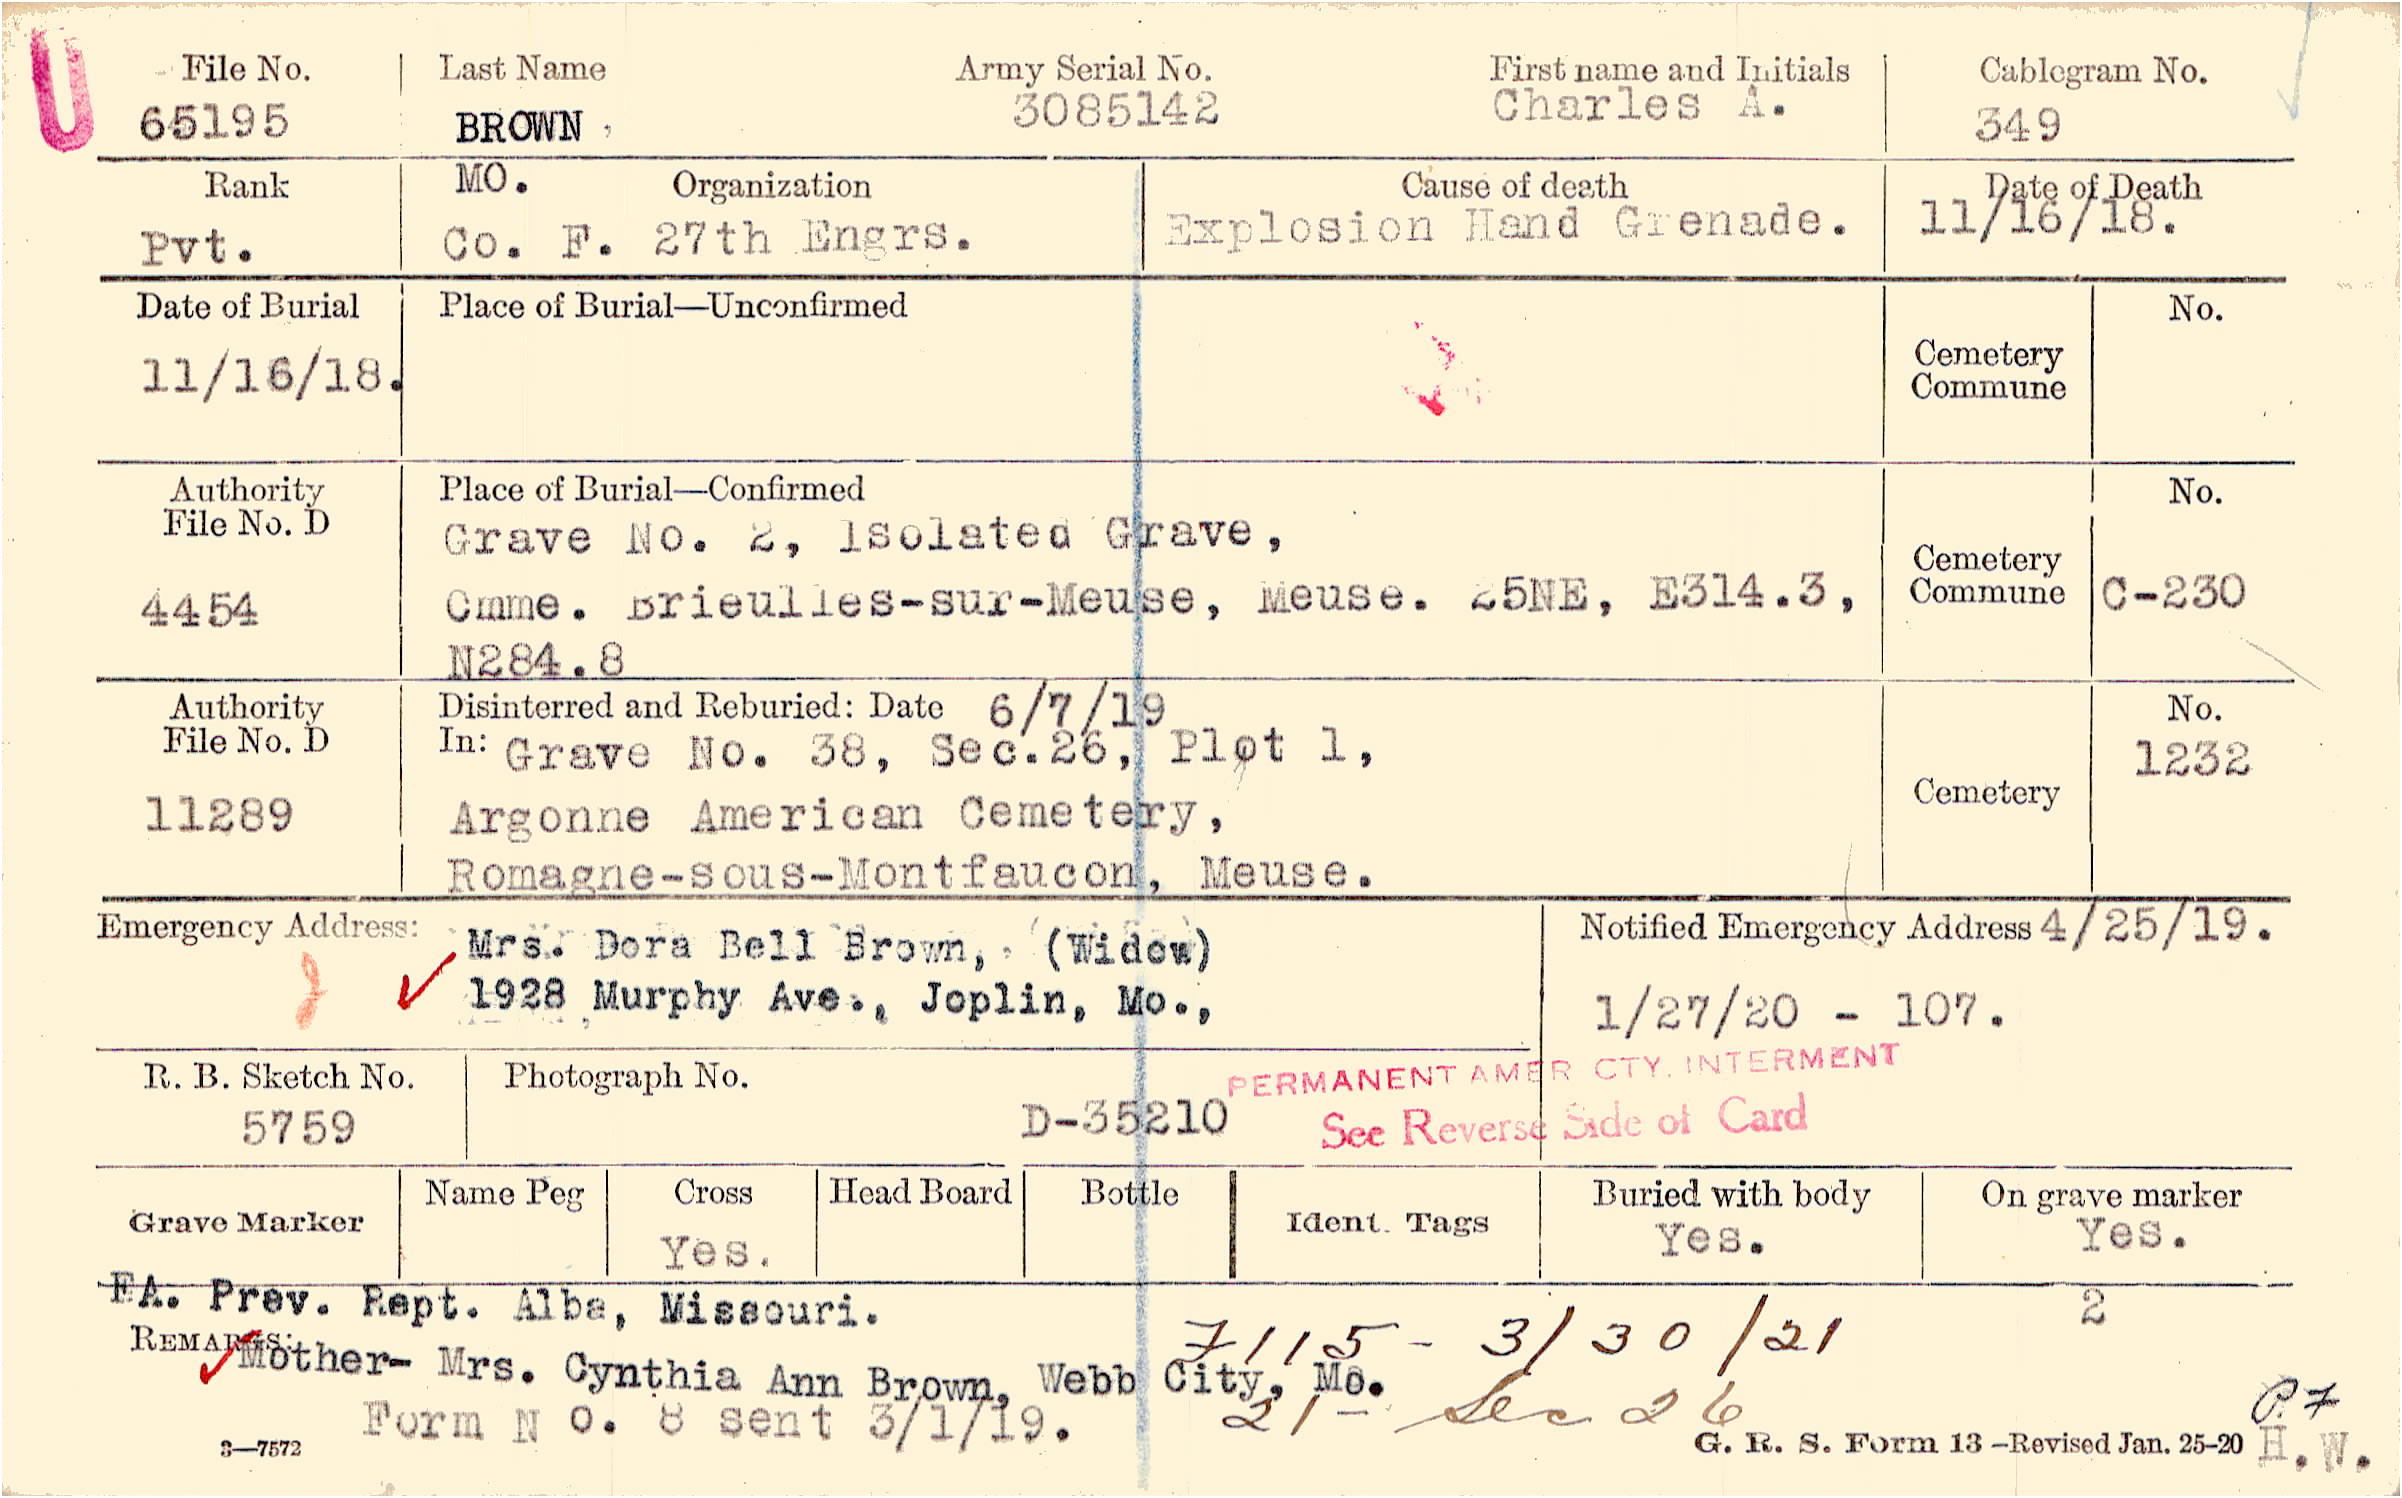 U
File No. Last Name Army Serial No. First name and Initials Cablegram No.
65195 BROWN, 3085142 Charles A. 349
Rank MO. Organization Cause of death Date of Death
Pvt. Co. F. 27th Engrs. Explosion Hand Grenade. 11/16/18.
Date of Burial Place of Burial—Unconfirmed No.
11/16/18.
Cemetery
Commune
Authority Place of Burial—Confirmed No.
File No. D Grave No. 2, Isolated Grave,
4454 Cmme. Brieulles-sur-Meuse, Meuse. 25NE, E314.3, Cemetery Commune C-230
N284.8
Authority Disinterred and Reburied: Date 6/7/19 No.
File No. D In: Grave No. 38, Sec.26, Plot 1, 1232
11289 Argonne American Cemetery, Cemetery
Romagne-sous-Montfaucon, Meuse.
Emergency Address: Mrs. Dora Bell Brown, (Widow) Notified Emergency Address 4/25/19.
1928 Murphy Ave., Joplin, Mo., 1/27/20 - 107.
R. B. Sketch No. Photograph No. PERMANENT AMER CTY. INTERMENT
5759 D-35210 See Reverse Side of Card
Grave Marker Name Peg Cross Head Board Bottle Ident. Tags Buried with body On grave marker
Yes. Yes. Yes.
EA. Prev. Rept. Alba, Missouri. 2
REMARKS: 7115 - 3/30/21
Mother- Mrs. Cynthia Ann Brown, Webb City, Mo.
Form N o. 8 sent 3/1/19. 21 - Sec 26
P.7
3—7572 G. R. S. Form 13 –Revised Jan. 25-20 H.W.